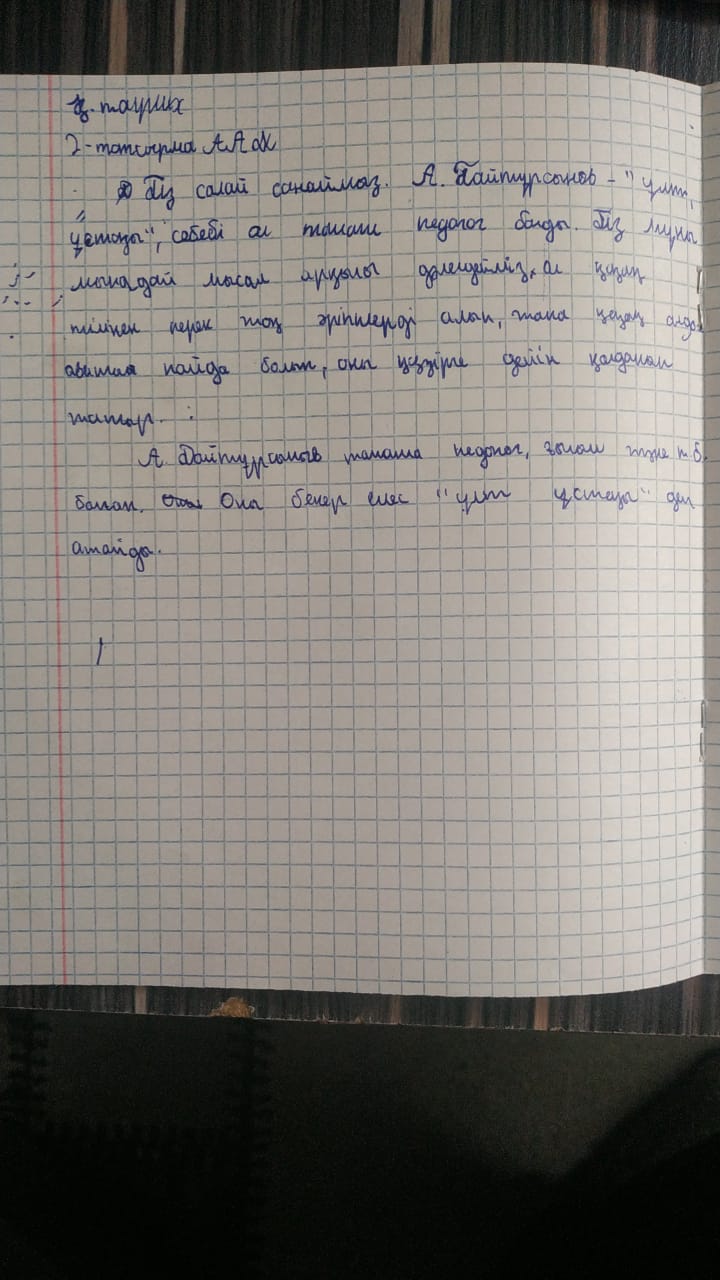 Қ. тарих
2-тапсырма ААДК
Біз солай санаймыз. А. Байтұрсынов - "ұлт
ұстазы", себебі ол тамаша педогог болды. Біз мұны
мынадай мысал арқылы дәлелдейміз, ол қазақ
тілінен керек жоқ әріптерді алып, жаңа қазақ
пайда болып, оны қазірге дейін қолданып
жатыр.
А. Байтұрсынов тамаша педогог, ғалым және т.б.
болған. Оны бекер емес "ұлт ұстазы" деп
атайды.